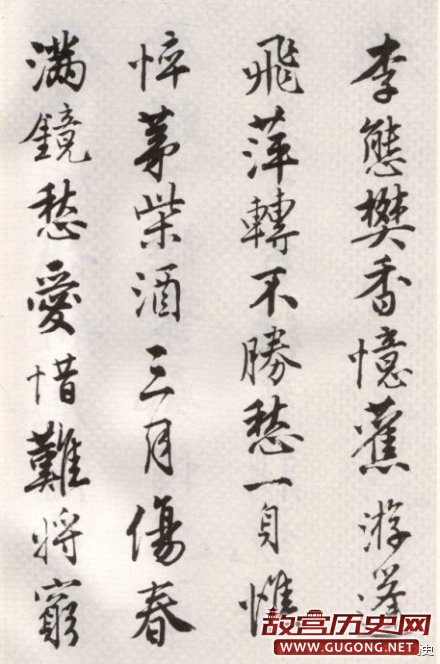 李態樊香憶舊游蓬
飛萍轉不勝愁一身憔
悴茅柴酒三月傷春
滿鏡愁愛惜難將窮
故宫历史网
WWW.GUGONG.NET
史